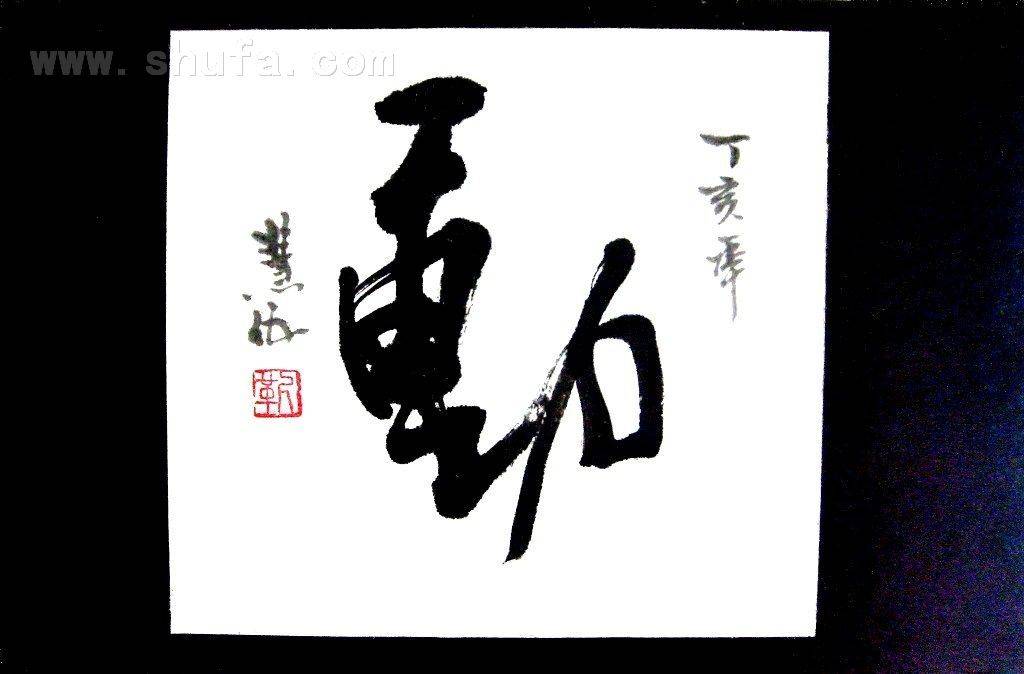 www.shufa.com
丁亥年
動
慧
靳